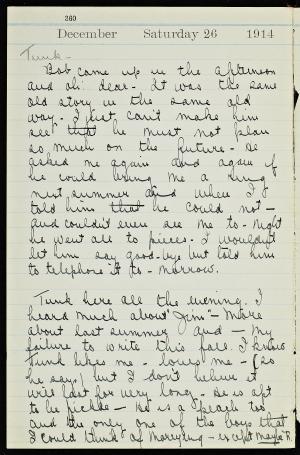 360
December Saturday 26 1914
Tunk -
Bob came up in the afternoon
and oh! dear - It was the same
old story in the same old
way. I just can't make him
see that he must not plan
so much on the future. He
asked me again and again if
he could bring me a ring
next summer and when I
told him that he could not -
and couldn't even see me to-night
he went all to pieces. I wouldn't
let him say good-bye but told him
to telephone it to-morrow.
Tunk here all the evening. I
heard much about "Jim" - More
about last summer and - my
failure to write this fall. I know
Tunk likes me - loves me - (so
he says) but I don't believe it
will last for very long. He is apt
to be fickle - He is a peach too
and the only one of the boys that
I could think of marrying - except maybe R.